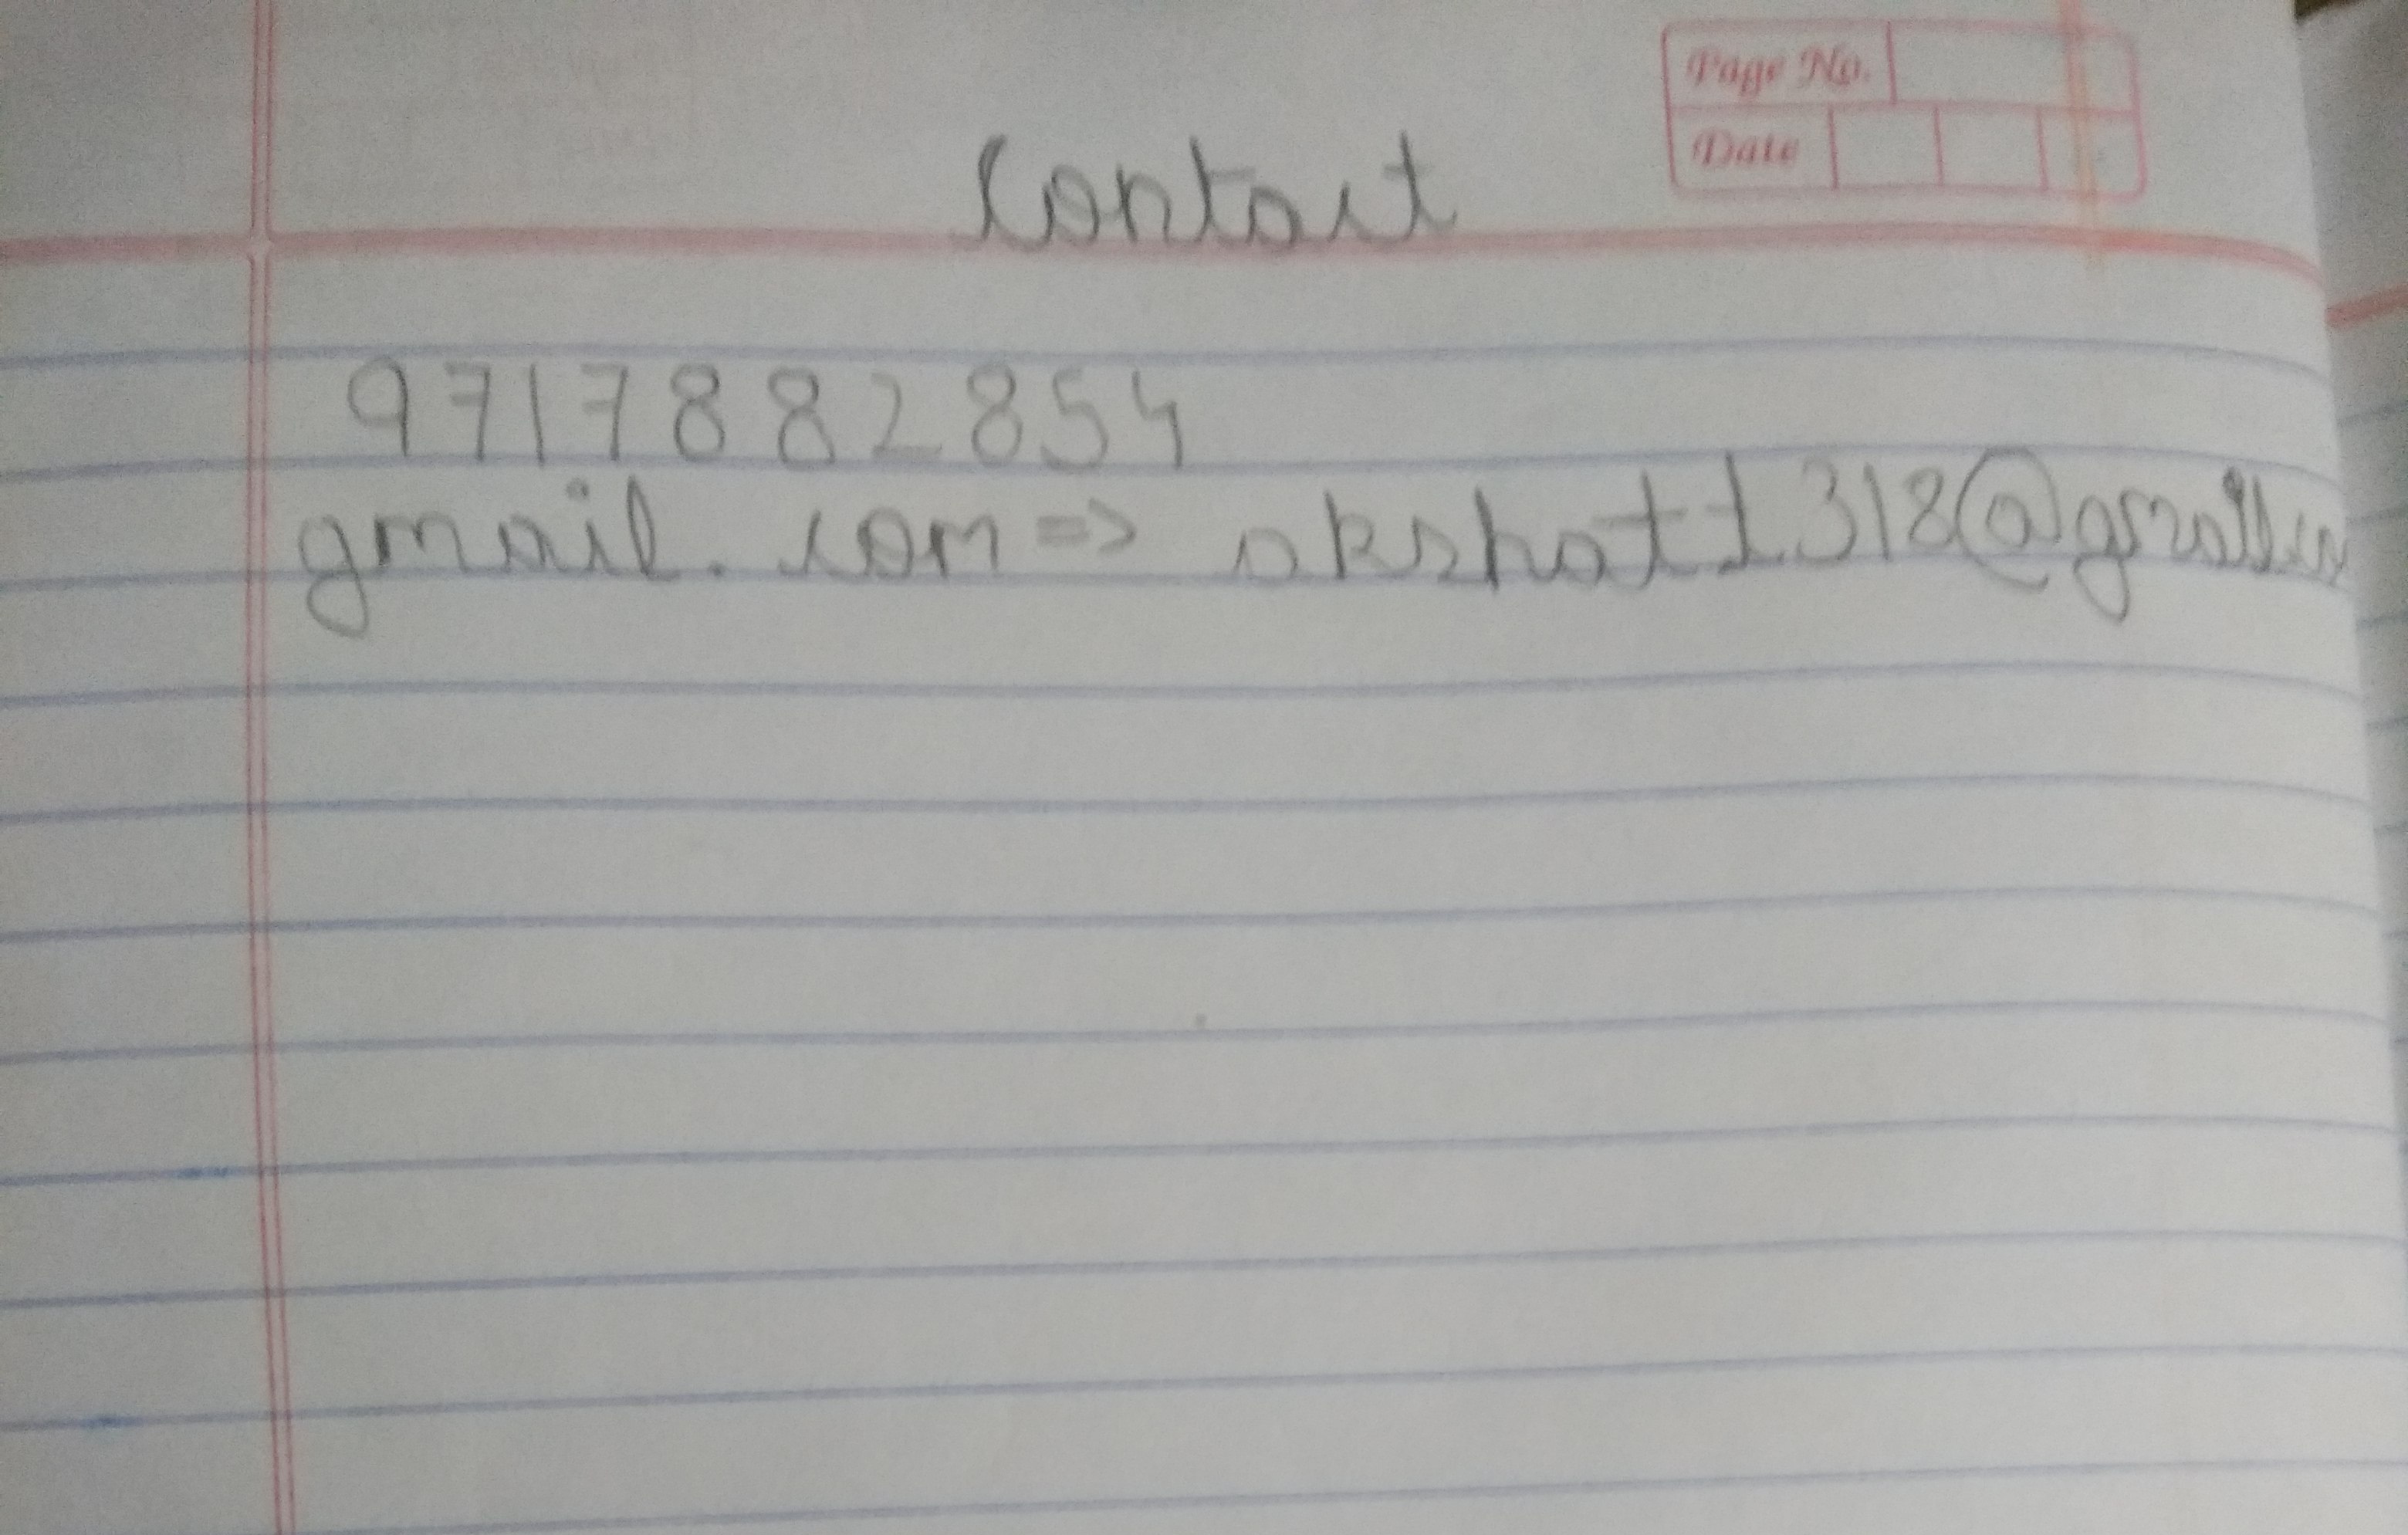 Page No.
Date
Contact
9717882854
gmail.com => akshat1318@gmail.com